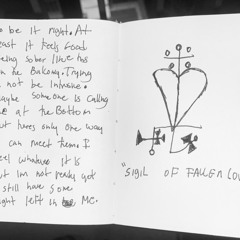 o be it right. At
east it feels Good
eing sober like this
n the Balcony. Trying
not be Intrusive.
aybe someone is calling
e at the Bottom
ut theres only one way
can meet them. I
eel whatever it is
ut im not ready yet
still have some
ight left in me.
"Sigil OF FALLEN LOV